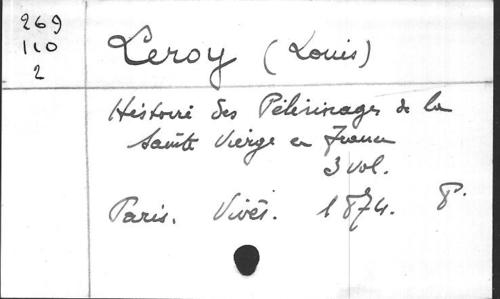 269
110
2
Leroy (Louis)
Histoire des Pèlerinages de la
Sainte Vierge en France
3 vol.
Paris. Vivès. 1874. 8°.